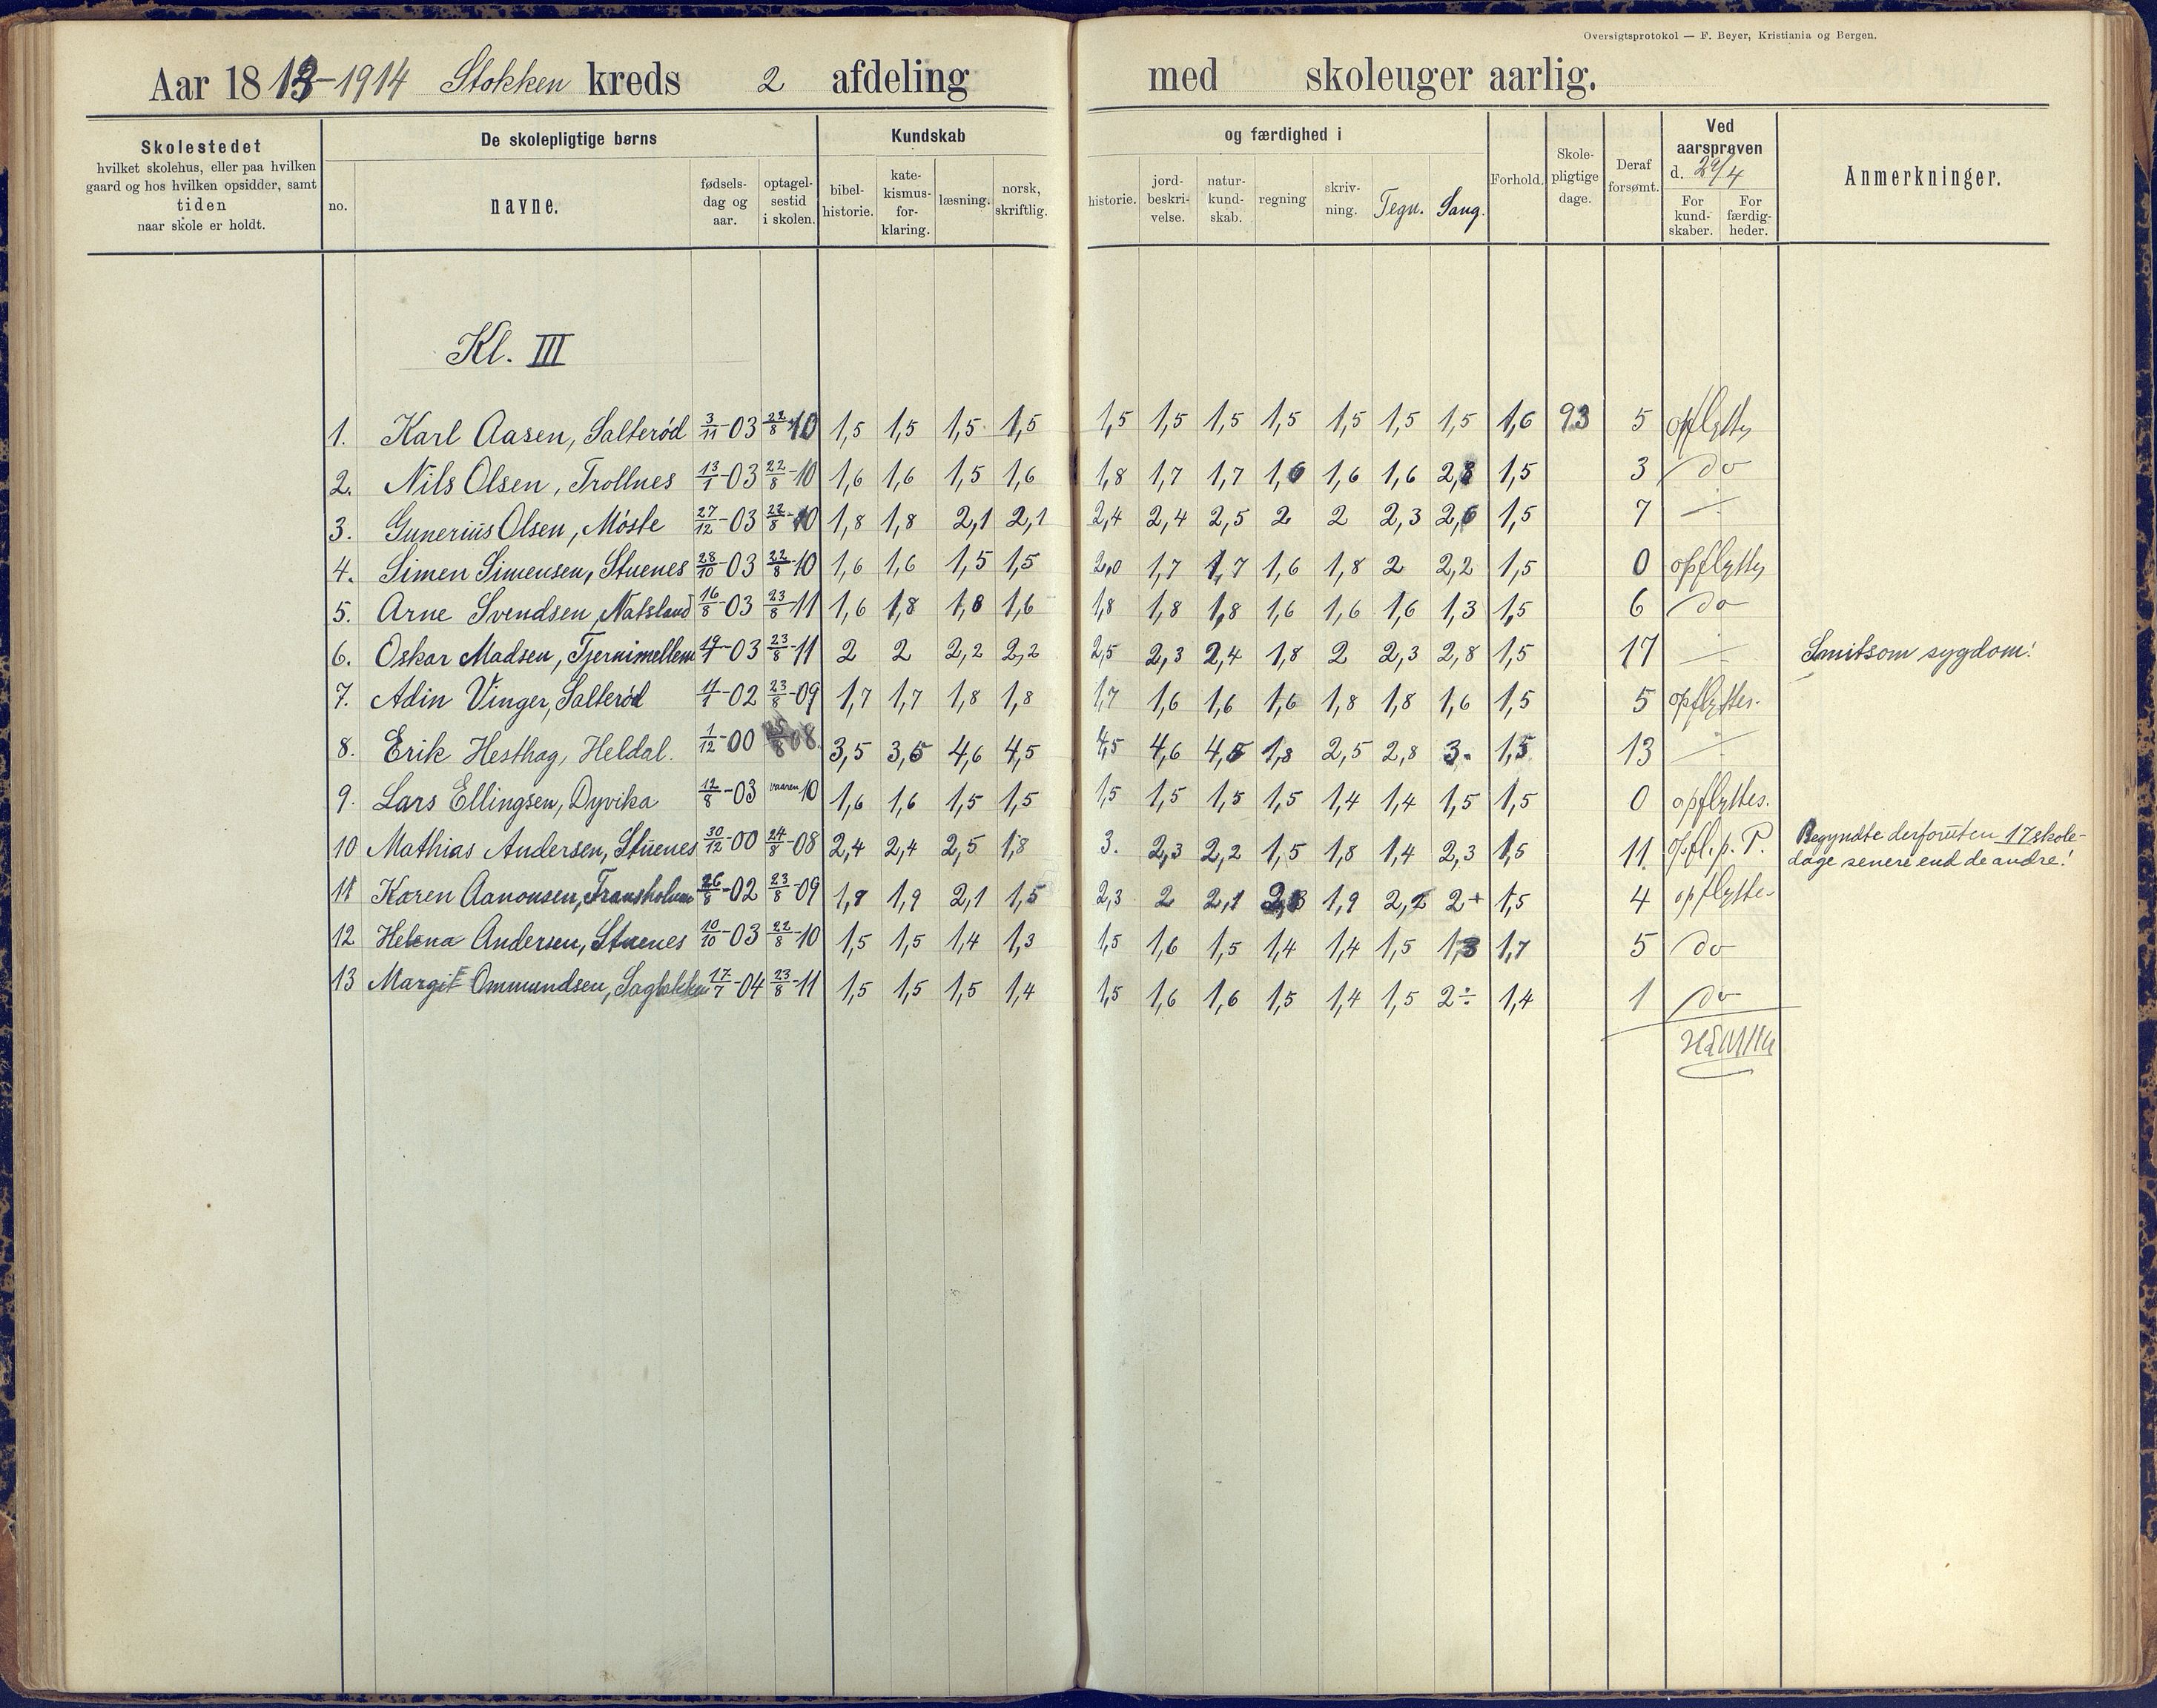 Oversigtsprotokol — F. Beyer, Kristiania og Bergen.
Aar 1813-1914 Stokken kreds 2 afdeling med skoleuger aarlig.
Skolestedet
hvilket skolehus, eller paa hvilken
gaard og hos hvilken opsidder, samt
tiden
naar skole er holdt.
De skolepligtige børns
no.
navne.
fødsels-
dag og
aar.
optagel-
sestid
i skolen.
Kundskab
bibel-
historie.
kate-
kismus-
for-
klaring.
læsning.
norsk,
skriftlig.
og færdighed i
historie.
jord-
beskri-
velse.
natur-
kund-
skab.
regning
skriv-
ning.
Tegn.
Sang.
Forhold.
Skole-
pligtige
dage.
Deraf
forsømt.
Ved
aarsprøven
d. 29/4
For
kund-
skaber.
For
færdig-
heder.
Anmerkninger.
Kl. III
1. Karl Aasen, Salterød 3/11-03 22/8-10 1,5 1,5 1,5 1,5 1,5 1,5 1,5 1,5 1,5 1,5 1,5 1,6 93 5 opflyttes
2. Nils Olsen, Trollnes 13/1-03 22/8-10 1,6 1,6 1,5 1,6 1,8 1,7 1,7 1,6 1,6 1,6 2,8 1,5 3 do
3. Gunerius Olsen, Møsle 27/12-03 22/8-10 1,8 1,8 2,1 2,1 2,4 2,4 2,5 2 2 2,3 2,6 1,5 7 ÷
4. Simen Simensen, Stuenes 28/10-03 22/8-10 1,6 1,6 1,5 1,5 2,0 1,7 1,7 1,6 1,8 2 2,2 1,5 0 opflyttes
5. Arne Svendsen, Natsland 16/8-03 23/8-11 1,6 1,8 1,8 1,6 1,8 1,8 1,8 1,6 1,6 1,6 1,3 1,5 6 do
6. Oskar Madsen, Tjernimellem 03 23/8-11 2 2 2,2 2,2 2,5 2,3 2,4 1,8 2 2,3 2,8 1,5 17 ÷ Smitsom sygdom!
7. Adin Vinger, Salterød 02 23/8-09 1,7 1,7 1,8 1,8 1,7 1,6 1,6 1,6 1,8 1,8 1,6 1,5 5 opflyttes.
8. Erik Hesthag, Heldal. 1/12-00 08. 3,5 3,5 4,6 4,5 4,5 4,6 4,5 1,8 2,5 2,8 3. 1,5 13 ÷
9. Lars Ellingsen, Dyvika 12/8-03 vaaren 10 1,6 1,6 1,5 1,5 1,5 1,5 1,5 1,5 1,4 1,4 1,5 1,5 0 opflyttes.
10 Mathias Andersen, Stuenes 30/12-00 24/8-08 2,4 2,4 2,5 1,8 3. 2,3 2,2 1,5 1,8 1,4 2,3 1,5 11 opfl. p. P. Begyndte derforuten 17 skole-
dage senere end de andre!
11 Karen Aanonsen, Fransholmen 26/8-02 23/8-09 1,8 1,9 2,1 1,5 2,3 2 2,1 1,9 2,2 2+ 1,5 4 opflyttes
12 Helena Andersen, Stuenes 10/10-03 22/8-10 1,5 1,5 1,4 1,3 1,5 1,6 1,5 1,4 1,4 1,5 1,3 1,7 5 do
13 Margit Ommundsen, 17/7-04 23/8-11 1,5 1,5 1,5 1,4 1,5 1,6 1,6 1,5 1,4 1,5 2÷ 1,4 1 do